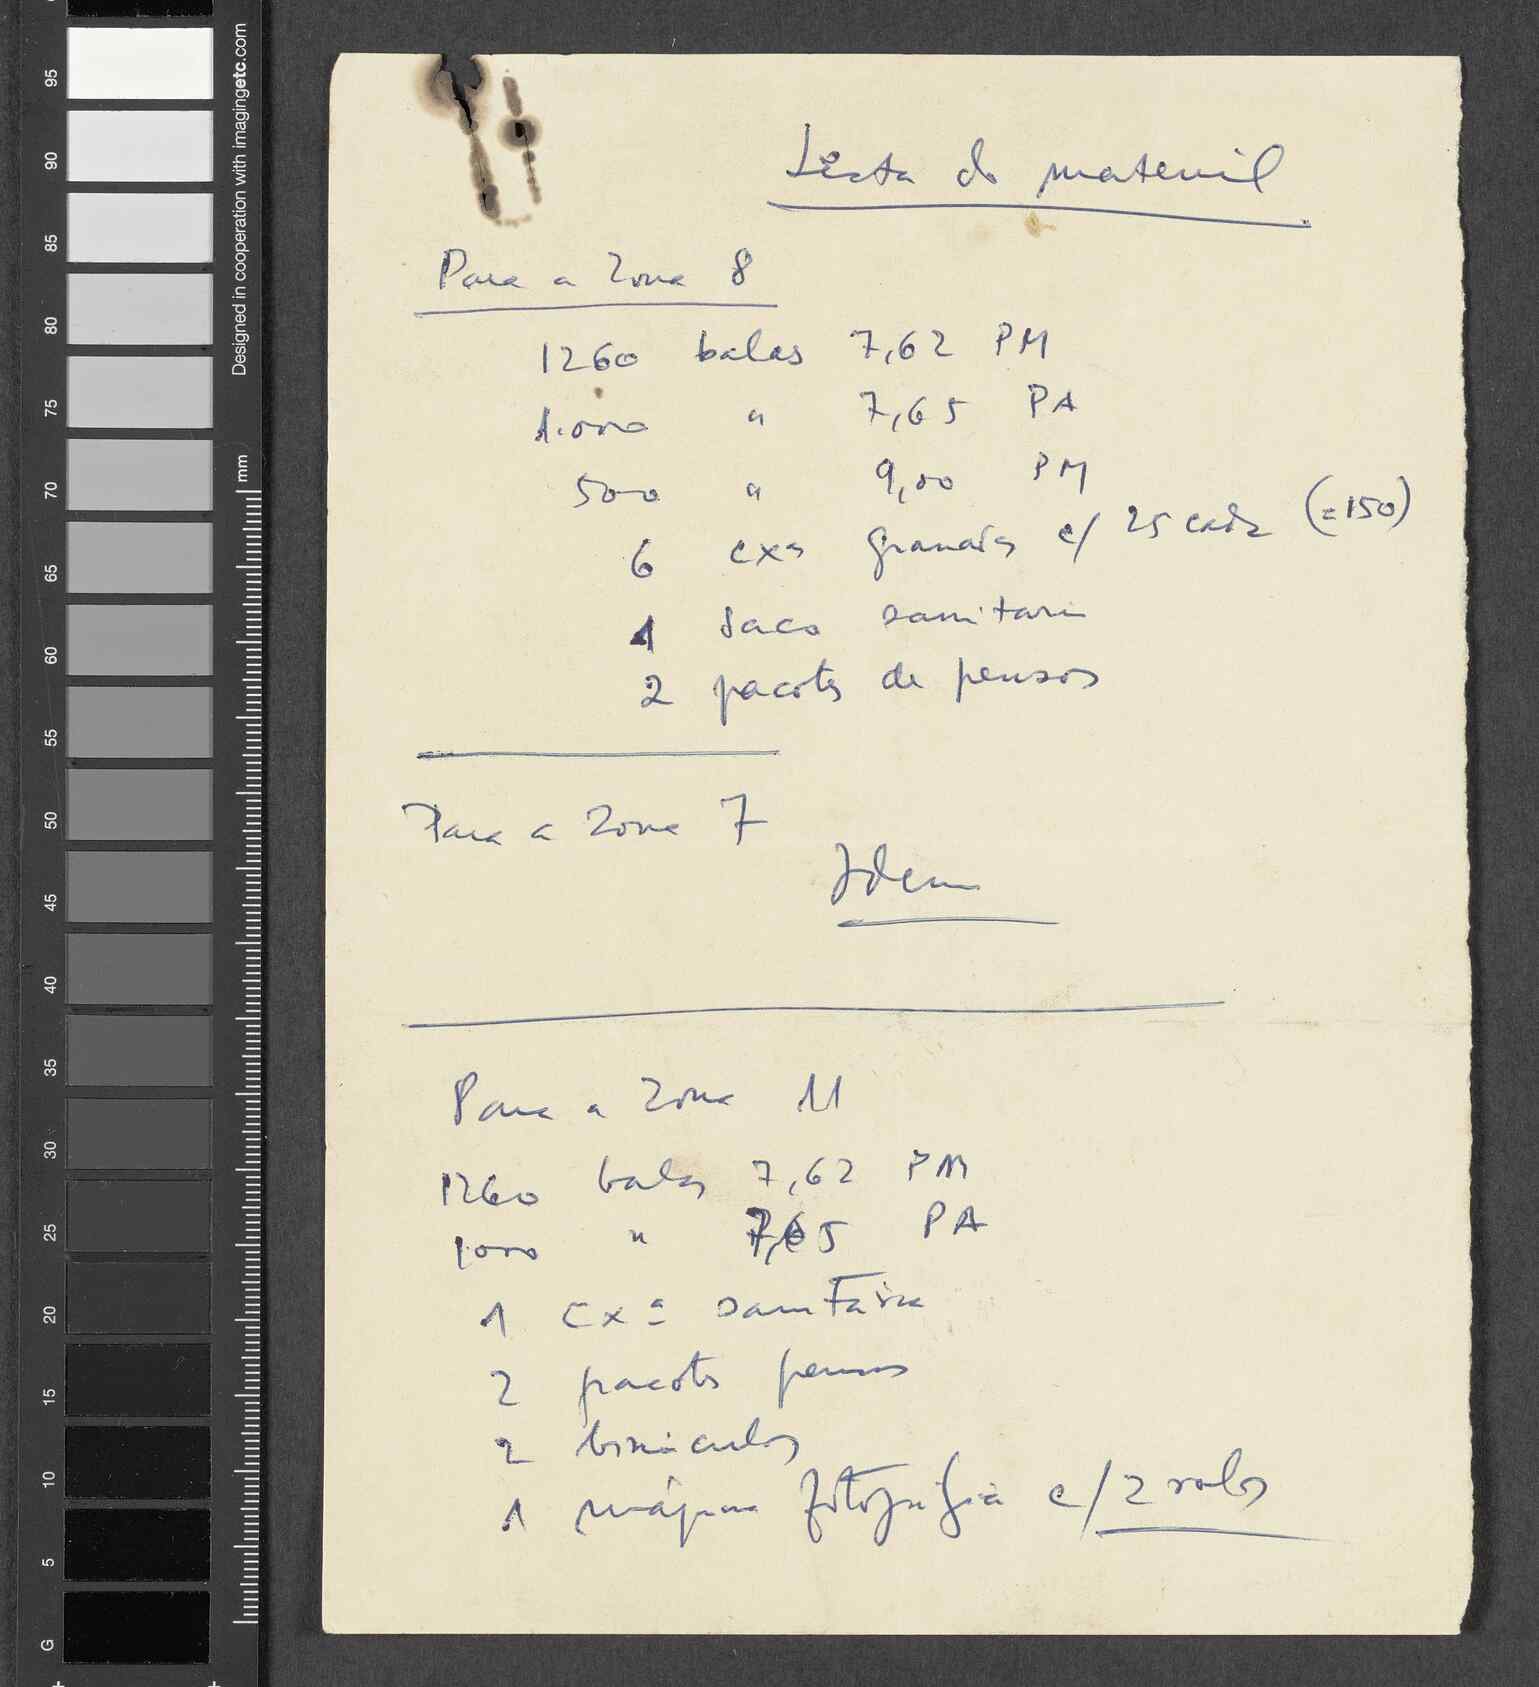 Lista do material
Para a Zona 8
1260 balas 7,62 PM
1.000 " 7,65 PA
500 " 9,00 PM
6 cxas granadas c/ 25 cada (=150)
1 saco sanitario
2 pacotes de pensos
Para a Zona 7
Idem
Para a Zona 11
1260 balas 7,62 PM
1000 " 7,65 PA
1 cxª sanitária
2 pacotes pensos
2 binóculos
1 máquina fotográfica c/ 2 rolos
Designed in cooperation with imagingetc.com
mm
95
90
85
80
75
70
65
60
55
50
45
40
35
30
25
20
15
10
5
G